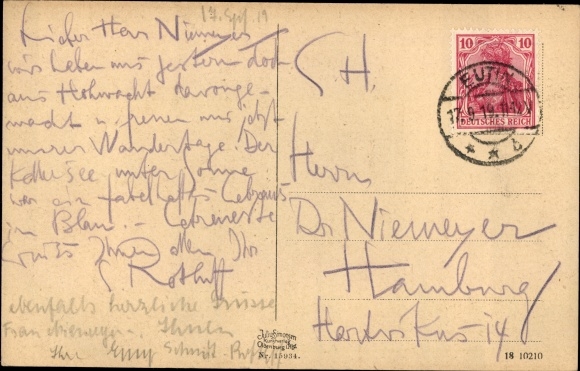 17. Sept. 19
Lieber Herr Niemeyer
wir haben uns gestern doch
aus Hohwacht davonge-
macht u. freuen uns jetzt
unserer Wandertage. Der
Kellersee unter Sonne
war ein fabelhaftes
in Blau.
Grüße Ihnen allen Ihr
Rottluff
ebenfalls herzliche Grüsse
Frau Niemeyer Ihnen
Ihre Emy Schmidt-Rottluff
S. H.
Herrn
Dr Niemeyer
Hamburg
14
10 10
DEUTSCHES REICH
EUTIN
17.9.19
* * b
Julius Simonsen
Kunstverlag
Oldenburg i. Holst.
Nr. 15034.
18 10210